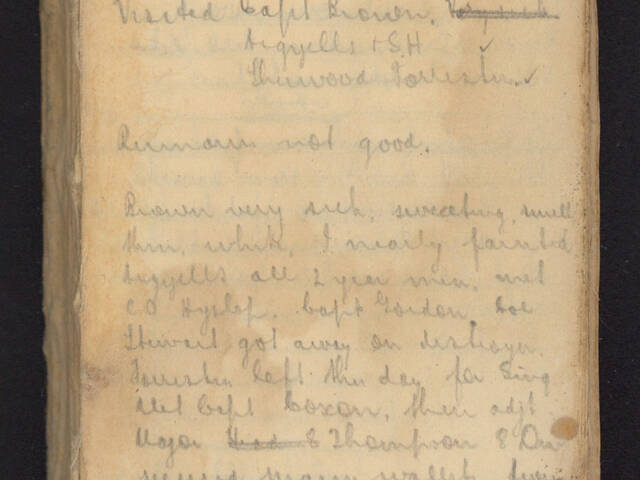 Visited Capt Brown,
Argylls & S.H
Sherwood Forresters.
Rumours not good.
Brown very sick, sweating, smell
thin, white, I nearly fainted
Argylls all 2 year men, met
C.O Hyslop. Capt Gordon,
Stewart got away on destroyer.
Forresters left this day for Sing
Met Capt Coxon, their adjt
Major Thompson &
many